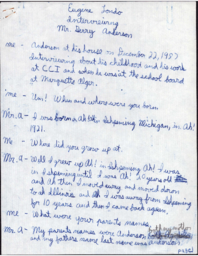 Eugene Londo
Interviewing
Mr. Gerry Anderson
me - Anderson at his house on December 22, 1987
Interviewing about his childhood and his work
at CCI and when he was at the school board
at Marquette
me - "Hi! When and where were you born
Mr. A - I was born Ah the Ishpeming Michigan in Ah'
1921.
Me - Where did you grow up at.
Mr. A - Well I grew up Ah! in Ishpeming Ah! I was
in Ishpeming until I was Ah! years old
and Ah then I moved away and moved down
to Illinois and Ah I was away from Ishpeming
for 10 years and then I came back again.
Me - What were your parents names
Mr. A - My parents names were Anderson
and my father's name last name was Anderson